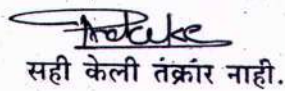 सही केली तंक्रांर नाही.